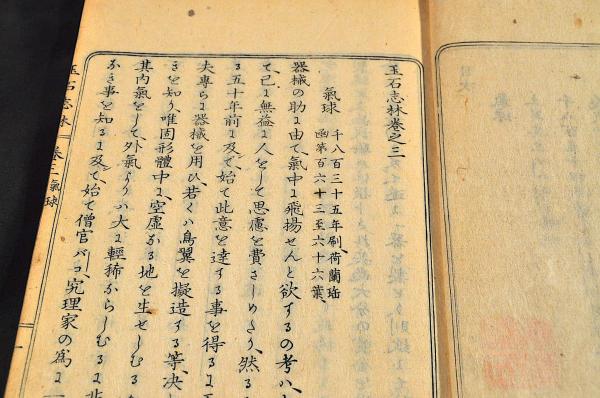 玉石志林巻之三
氣球 千八百三十五年刷荷蘭瑤
函第百六十三至六十六葉
器械の助に由て、氣中に飛揚せんと欲するの考ハ、
て、已に無益に人をして思慮を費さしめたり、然る
る五十年前に及で、始て此意を達する事を得る
夫専らに器械を用ひ、若くハ鳥翼を擬造する等、決し
きを知り、唯固形體中に、空虚なる地を生せしむる
其内氣をして、外氣よりハ大に輕稀ならしむるに非
なき事を知るに及で、始て僧官バコ、究理家の為に一
玉石志林 巻三氣球 一
目次